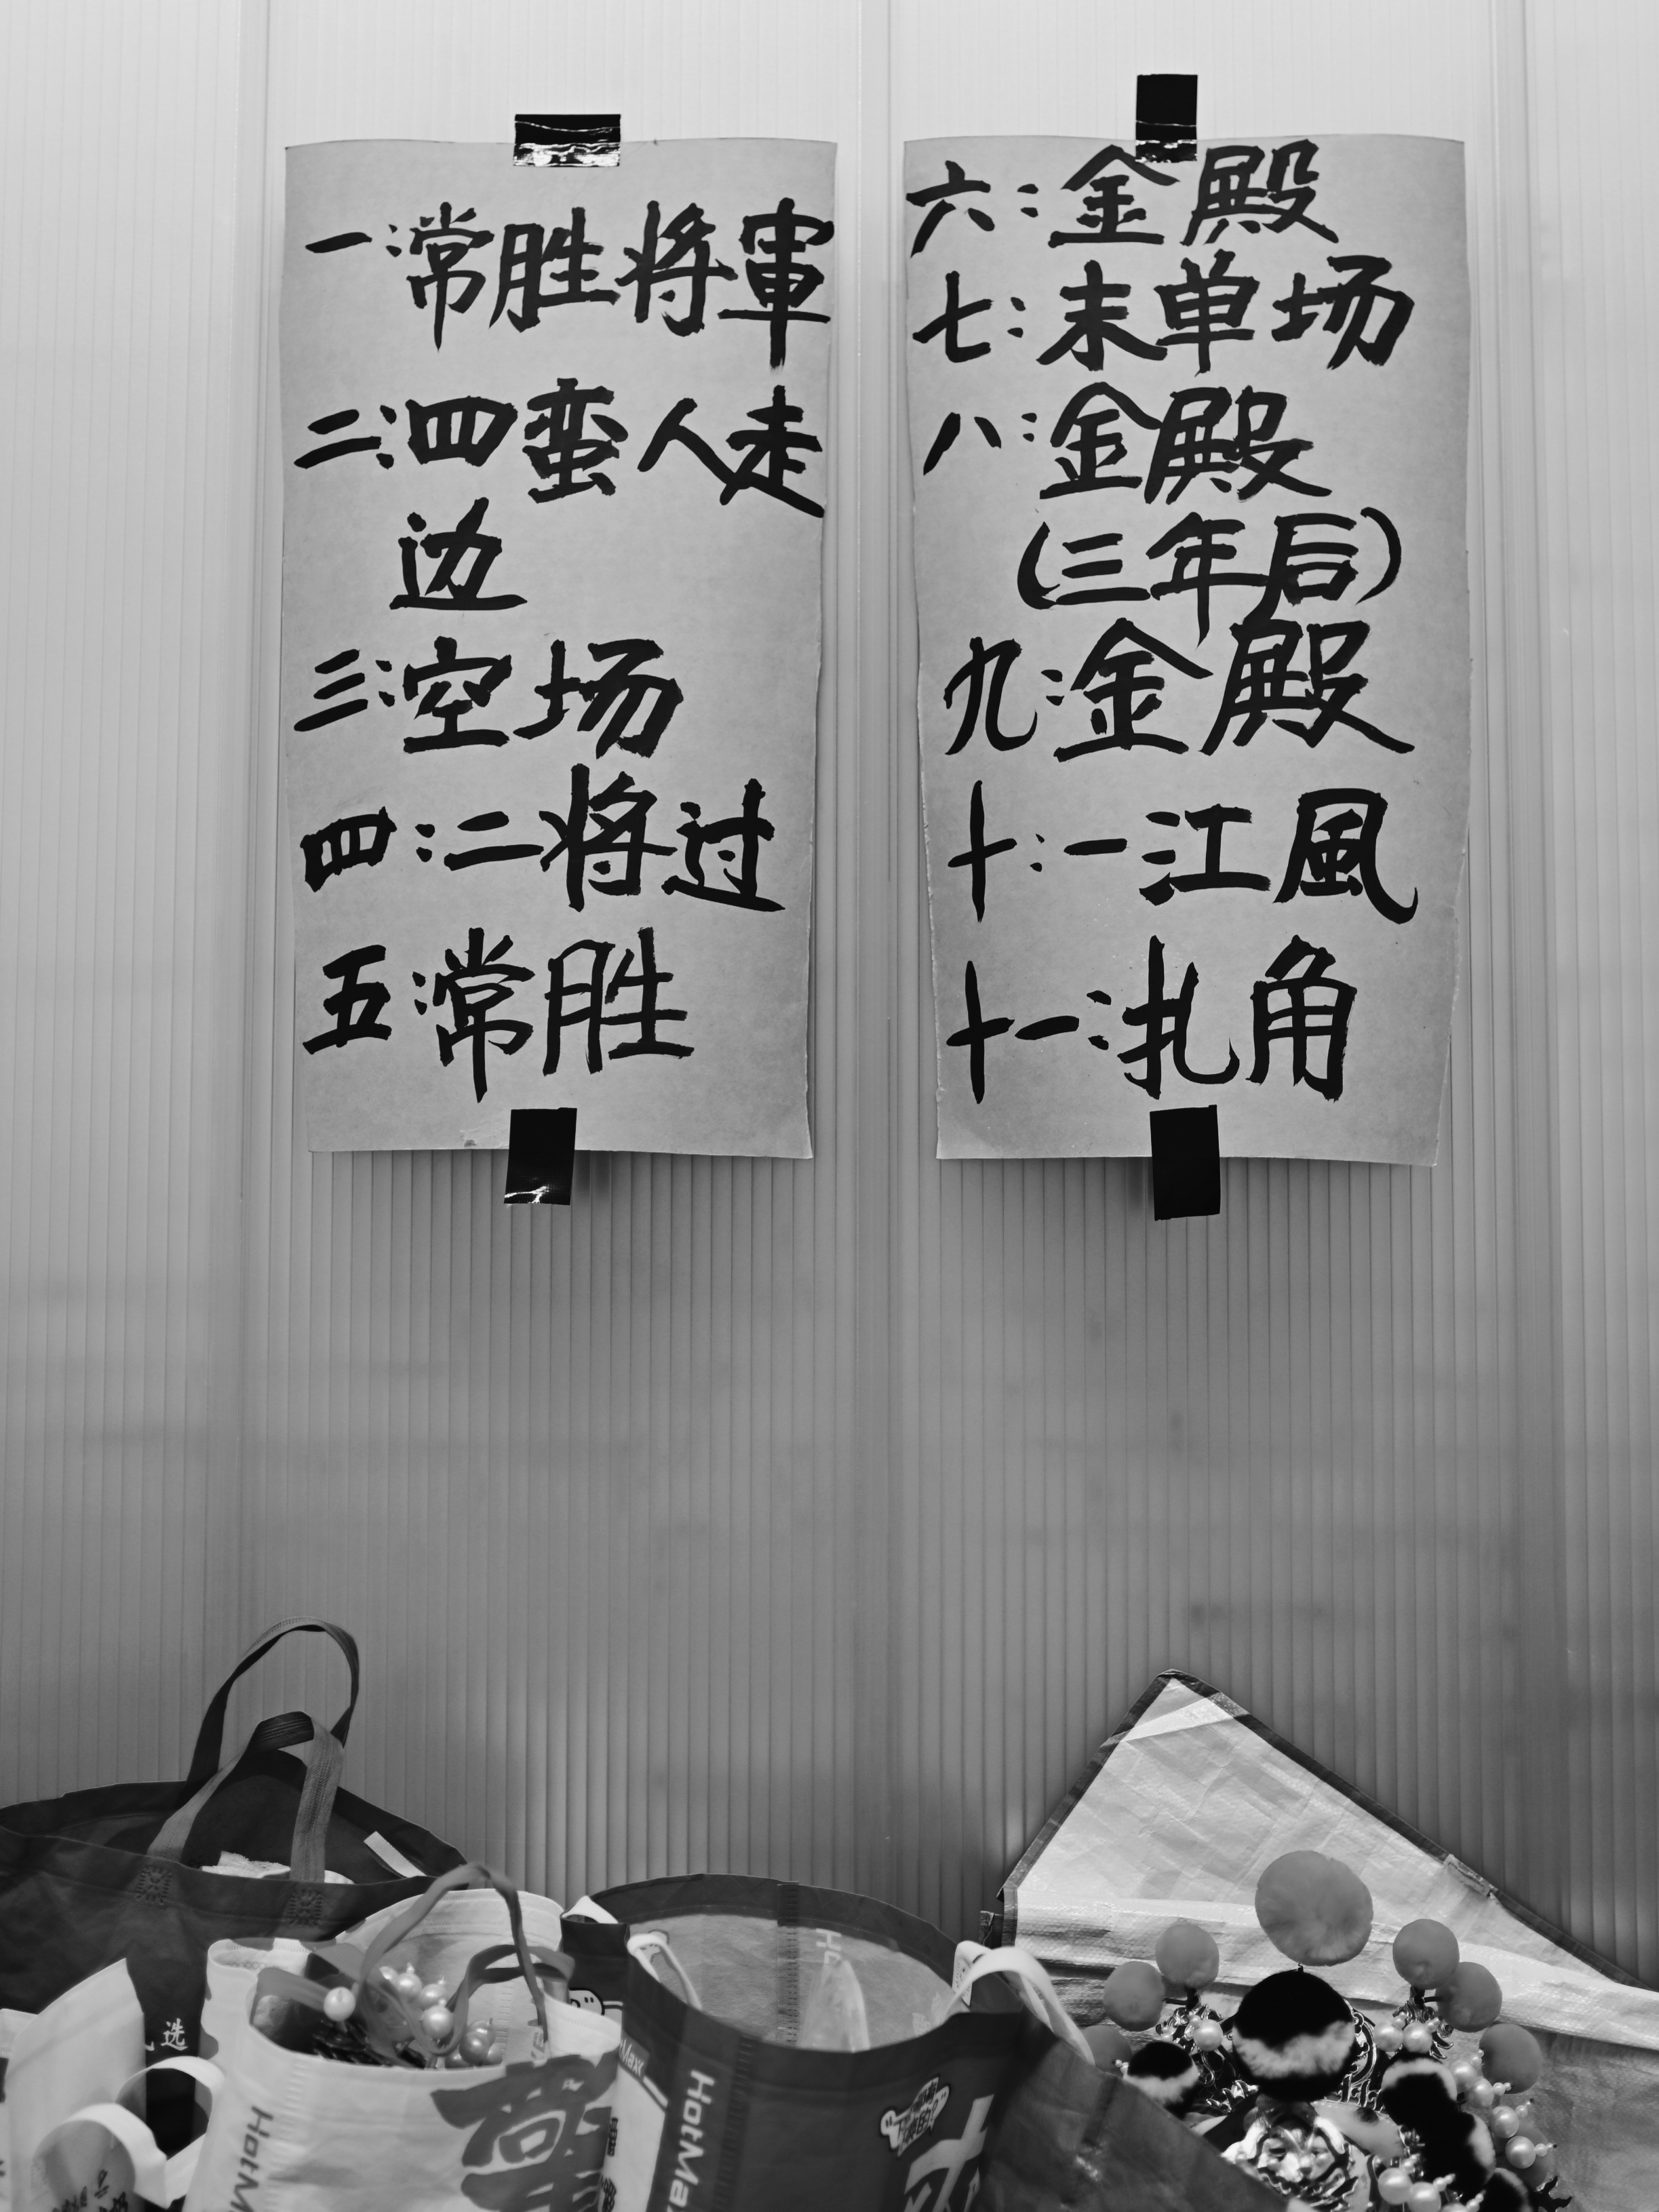 一:常胜将軍
二:四蛮人走
边
三:空场
四:二将过
五:常胜
六:金殿
七:末单场
八:金殿
(三年后)
九:金殿
十:一江風
十一:扎角
选
HotM
HotMax